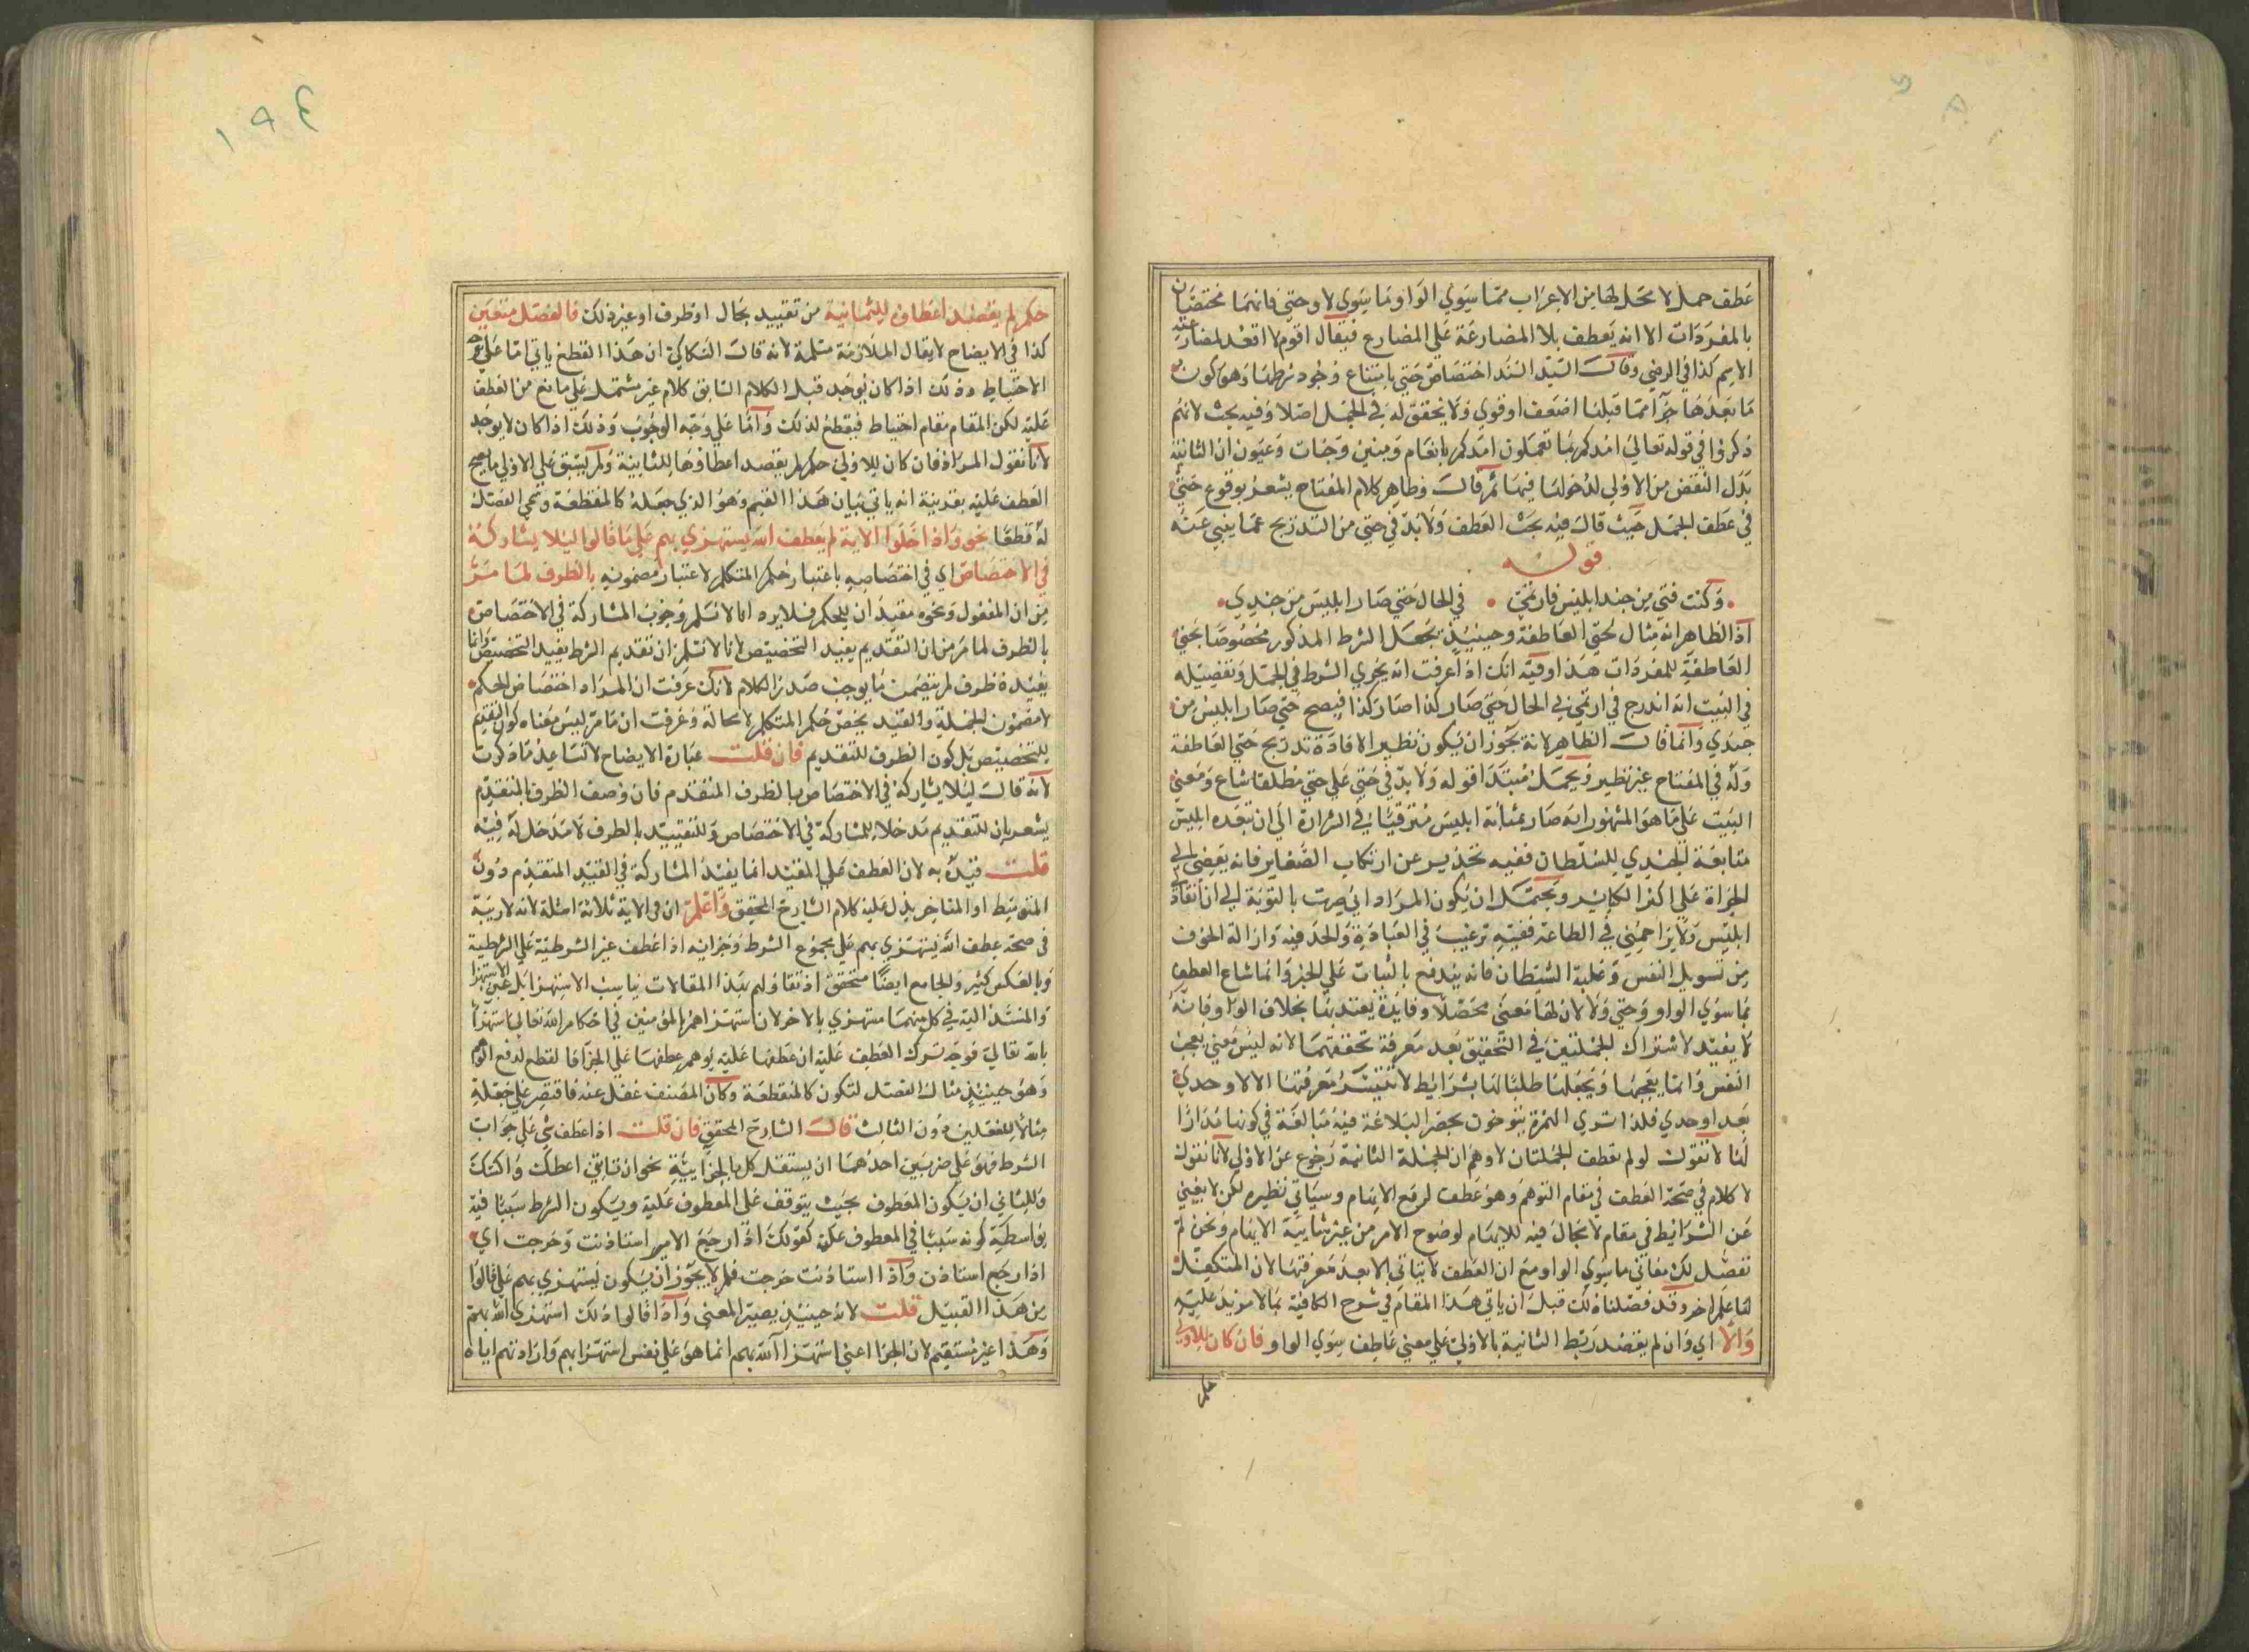 عطف جمل لا محل لها من الاعراب مما سوي الواو وما سوي لا وحتي فانهما مختصان
بالمفردات الا انه يعطف بلا المضارعة علي المضارع فيقال اقوم لا اقعد لمضارعته
الاسم كذا في الرضي وقال السيد السند اختصاص حتي بامتناع وجود شرطها وهو كون
ما بعدها جزآ مما قبلها اضعف او قوي ولا يتحقق له في الجمل اصلا وفيه بحث لانهم
ذكروا في قوله تعالي امدكم بما تعملون امدكم بانعام وبنين وجنات وعيون ان الثانية
بدل البعض من الاولي لدخولها فيها ثم قال وظاهر كلام المفتاح يشعر بوقوع حتي
في عطف الجمل حيث قال فيه بحث العطف ولا بد في حتي من التدريج عما ينبي عنه
قوله
وكنت فتي من جند ابليس فارتمي في الحال حتي صار ابليس من جندي
اذ الظاهر انه مثال لحتي العاطفة وحينيذ يجعل الشرط المذكور مخصوصا بحتي
العاطفة للمفردات هذا وفيه انك اذا عرفت انه يجري الشرط في الجمل وتفصيله
في البيت انه اندرج في ارتمي في الحال حتي صار كذا صار كذا فيصح حتي صار ابليس من
جندي وانما قال الظاهر لانه يجوز ان يكون نظير الافادة تدريج حتي العاطفة
وله في المفتاح غير نظير ويحمل مبتدا قوله ولا بد في حتي علي حتي مطلقا شاع ومعني
البيت علي ما هو المشهور انه صار بمثابة ابليس مترقيا في الشرارة الي ان تبعه ابليس
متابعة الجندي للسلطان ففيه تحذير عن ارتكاب الصغاير فانه يفضي الي
الجراة علي اكبر الكباير ويحتمل ان يكون المراد اني صرت بالتوبة الي ان انقاد
ابليس ولا يزاحمني في الطاعة ففيه ترغيب في العبادة والجد فيه وازالة الخوف
من تسويل النفس وغلبة الشيطان فانه يندفع بالثبات علي الخير وانما شاع العطف
بما سوي الواو وحتي ولا لان لها معني محصلا وفايدة يعتد بها بخلاف الواو فانه
لا يفيد الاشتراك للجملتين في التحقيق بعد معرفة تحققهما لانه ليس معني يعجب
النفس وانما يعجبها ويجعلها طلبا لها بشرايط لا تتيسر معرفتها الا لاوحدي
بعد اوحدي فلذا تري المهرة يتوخون بحصر البلاغة فيه مبالغة في كونها مدارا
لها لا نقول لو لم تعطف الجملتان لاوهم ان الجملة الثانية رجوع عن الاولي لانا نقول
لا كلام في صحة العطف في مقام التوهم وهو عطف لرفع الايهام وسياتي نظيره لكن لا يغني
عن الشرايط في مقام لا مجال فيه للايهام لوضوح الامر من غير شايبة الايهام ونحن لم
نفصل لك معاني ما سوي الواو مع ان العطف لا يتاتي الا بعد معرفتها لان المتكفل
لها علم اخر وقد فصلناه لك قبل ان ياتي هذا المقام في شرح الكافية بما لا مزيد عليه
والا اي وان لم يقصد ربط الثانية بالاولي علي معني عاطف سوي الواو فان كان للاولي
حكم
١٩٤
حكم لم يقصد اعطاؤه للثانية من تقييد بحال او ظرف او غير ذلك فالفصل متعين
كذا في الايضاح لا يقال الملازمة مسلمة لانه قال السكاكي ان هذا القطع ياتي اما علي وجه
الاحتياط وذلك اذا كان يوجد قبل الكلام السابق كلام غير مشتمل علي مانع من العطف
عليه لكن المقام مقام احتياط فيقطع لذلك واما علي وجه الوجوب وذلك اذا كان لا يوجد
لانا نقول المراد فان كان للاولي حكم لم يقصد اعطاؤها للثانية ولم يسبق علي الاولي ما يصح
العطف عليه بقرينة انه ياتي بيان هذا القسم وهو الذي جعله كالمقطعة وسمي الفصل
له قطعا نحو واذا خلوا الاية لم يعطف الله يستهزي بهم علي ما قالوا ليلا يشاركه
في الاختصاص اي في اختصاصه باعتبار حكم المتكلم لا اعتبار مضمونه بالظرف لما مر
من ان المفعول ونحوه مفيد ان للحكم فلا يرد انا لا نسلم وجوب المشاركة في الاختصاص
بالظرف لما مر من ان التقديم يفيد التخصيص لانا لا نسلم ان تقديم الشرط يفيد التخصيص وانما
يفيده ظرف لم يتضمن ما يوجب صدر الكلام لانك عرفت ان المراد اختصاص الحكم
لا مضمون الجملة والقيد يخص حكم المتكلم لا محالة وعرفت ان ما مر ليس معناه كون التقديم
للتخصيص بل كون الظرف للتقديم فان قلت عبارة الايضاح لا تساعد ما ذكرت
لانه قال ليلا يشاركه في الاختصاص بالظرف المتقدم فان وصف الظرف بالمتقدم
يشعر بان للتقديم مدخلا للمشاركة في الاختصاص وللتقييد بالظرف لا مدخل له فيه
قلت قيد به لان العطف علي المقيد انما يفيد المشاركة في القيد المتقدم دون
المتوسط او المتاخر يدل عليه كلام الشارح المحقق واعلم ان في الاية ثلاثة امثلة لانه لا ريبة
في صحة عطف الله يستهزي بهم علي مجموع الشرط وجزائه اذ اعطف غير الشرطية علي الشرطية
وبالعكس كثير والجامع ايضا متحقق اذ تقاولهم بهذا المقالات يناسب الاستهزا بل عين الاستهزا
والمسند اليه في كل منهما مستهزي بالاخر لان استهزاهم المؤمنين في احكام الله تعالي استهزا
بالله تعالي فوجه ترك العطف عليه ان عطفها عليه يوهم عطفها علي الجزا فالقطع لدفع الوهم
وهو حينيذ مثال الفصل لتكون كالمنقطعة وكان المصنف غفل عنه فاقتصر علي جعله
مثالا للفصلين دون الثالث قال الشارح المحقق فان قلت اذا عطف شي علي جواب
الشرط فهو علي ضربين احدهما ان يستقل كل بالجزايية نحو ان تاتني اعطك واكسك
والثاني ان يكون المعطوف بحيث يتوقف علي المعطوف عليه ويكون الشرط سببا فيه
بواسطة كونه سببا في المعطوف عليه كقولك اذا رجع الامير استاذنت وخرجت اي
اذا رجع استاذن واذا استاذنت خرجت فلم لا يجوز ان يكون يستهزي بهم علي قالوا
من هذا القبيل قلت لانه حينيذ يصير المعني واذا قالوا ذلك استهزي الله بهم
وهذا غير مستقيم لان الجزا اعني استهزا الله بهم انما هو علي نفس استهزا بهم وارادتهم اياه